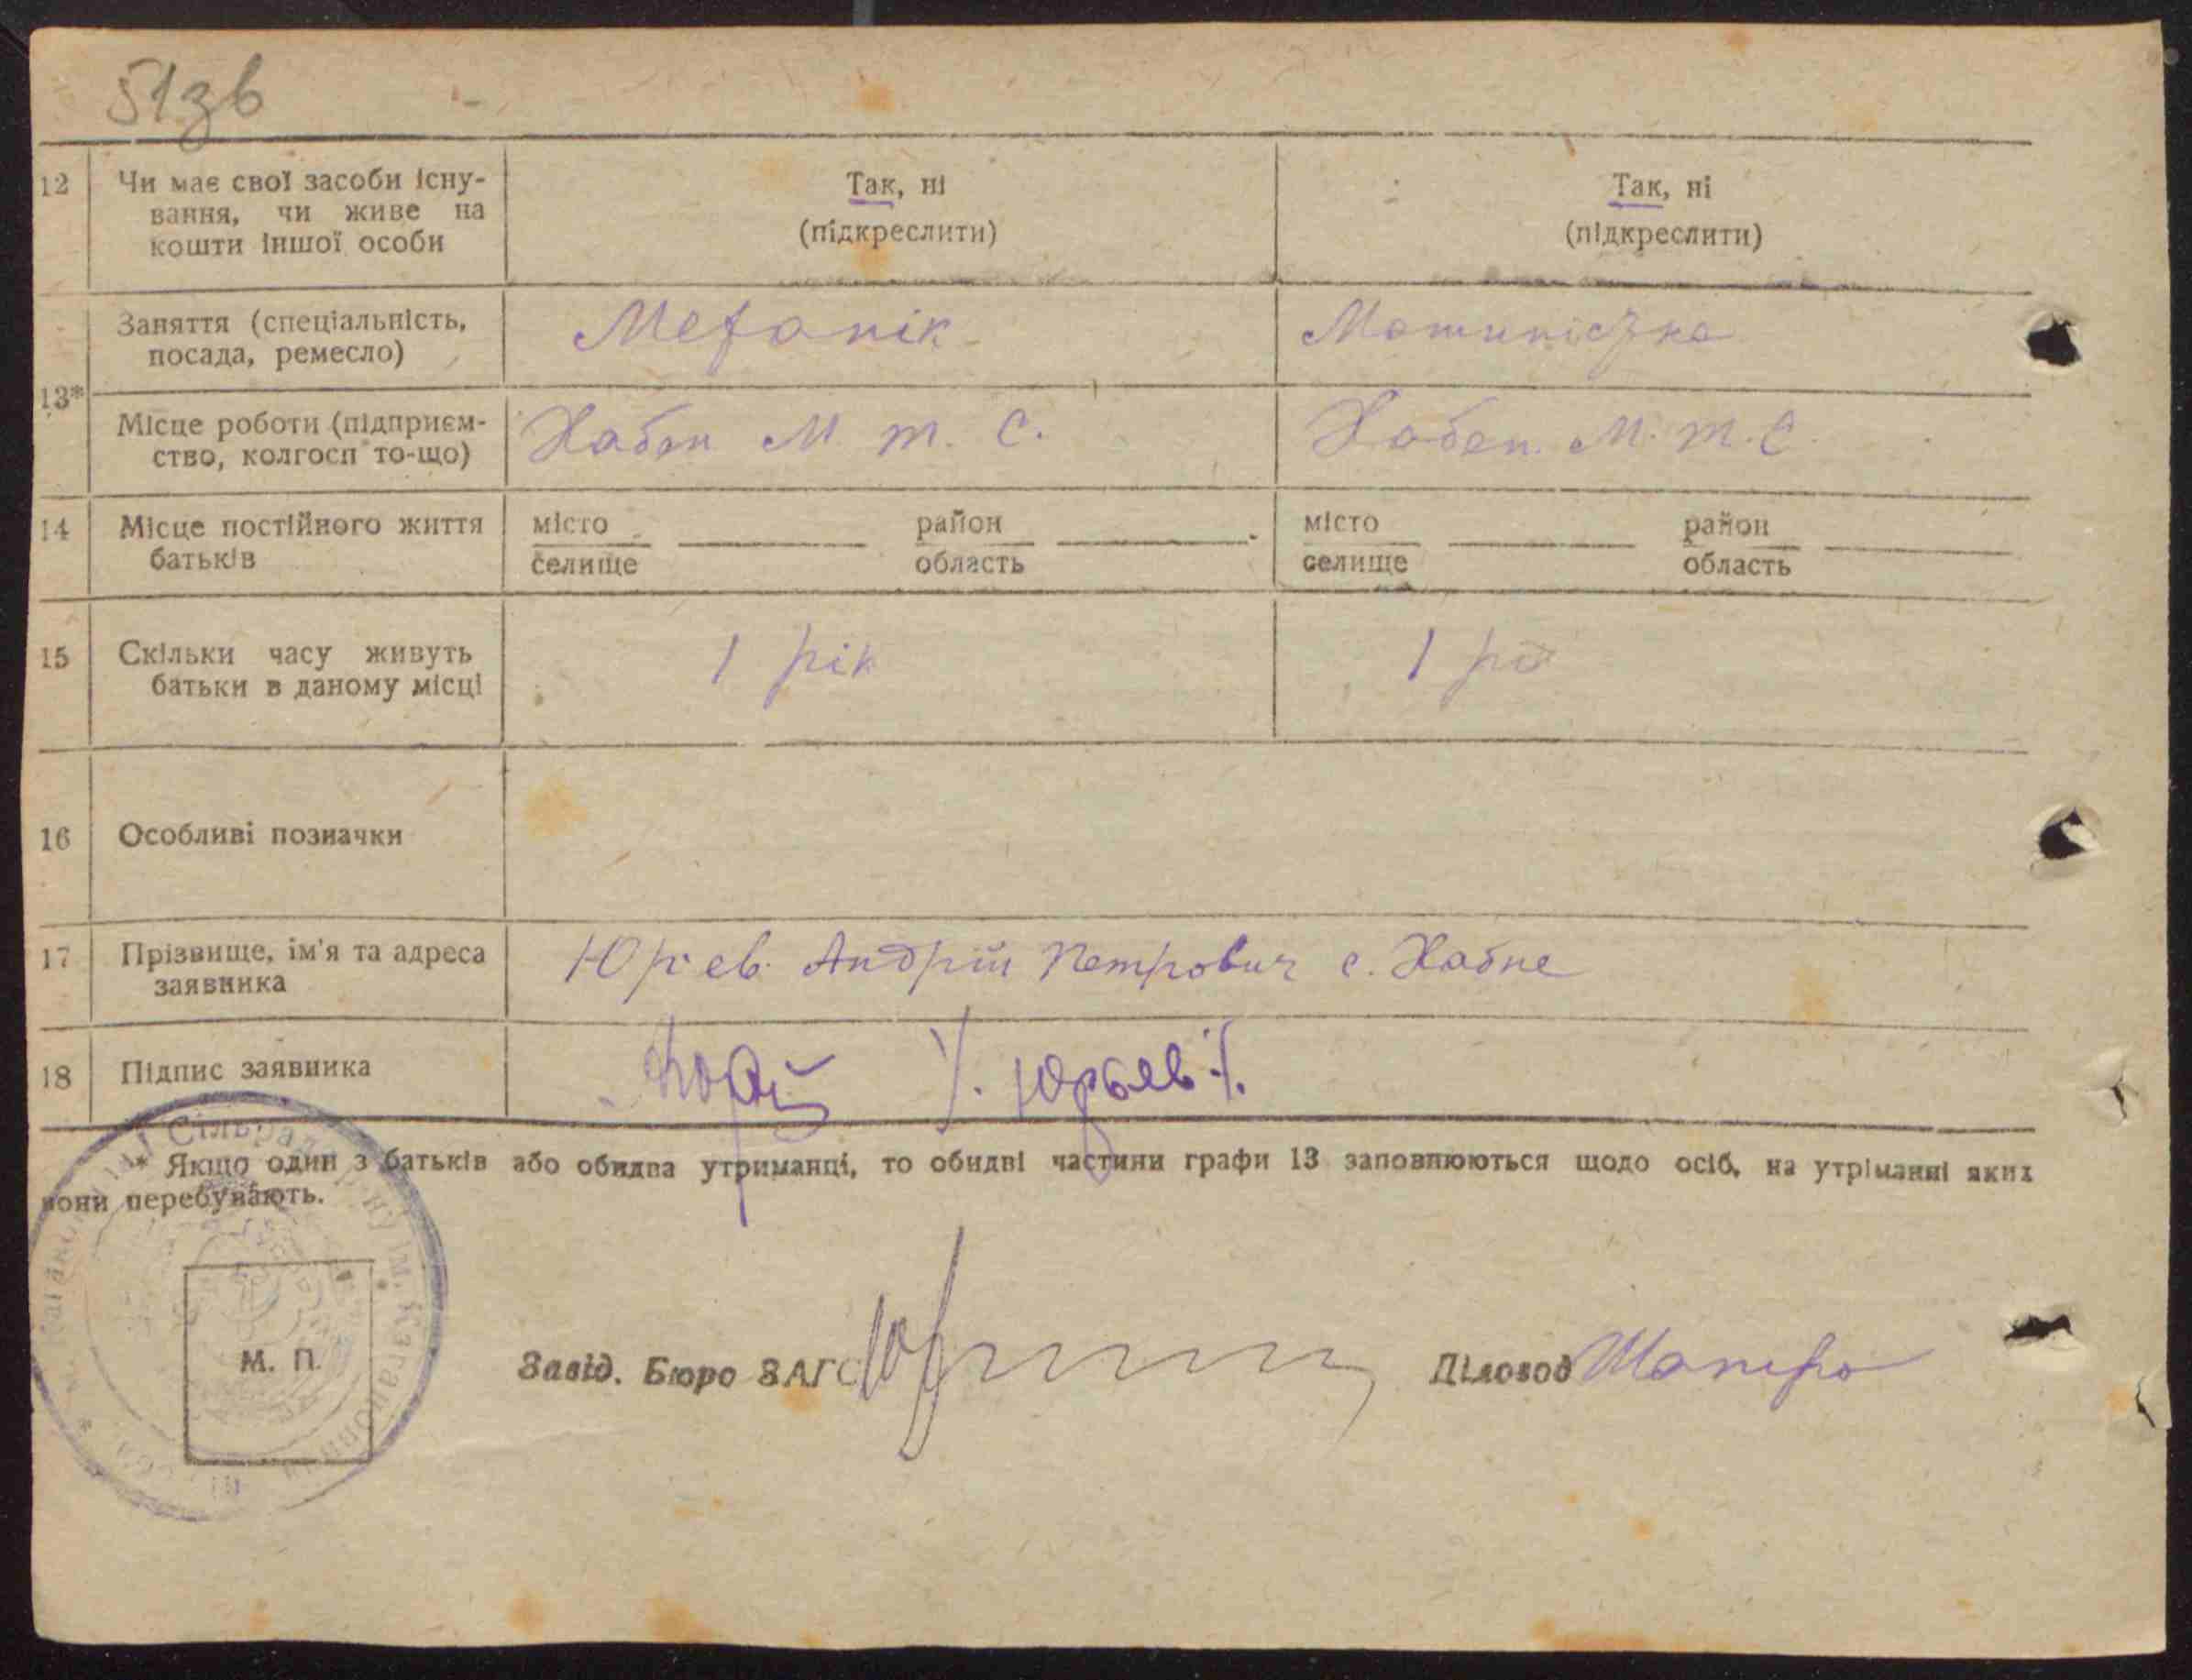 51зв
12 Чи має свої засоби існу- Так, ні Так, ні
вання, чи живе на (підкреслити) (підкреслити)
кошти іншої особи
Заняття (спеціальність, Механік Машиністка
посада, ремесло)
13*
Місце роботи (підприєм- Хабен М. т. С. Хабен. М. т. С.
ство, колгосп то-що)
14 Місце постійного життя місто район місто район
батьків селище область селище область
15 Скільки часу живуть 1 рік 1 рік
батьки в даному місці
16 Особливі позначки
17 Прізвище, ім'я та адреса Юр'єв. Андрій Петрович с. Хабне
заявника
18 Підпис заявника /. Юрьев ./.
* Якщо один з батьків або обидва утриманці, то обидві частини графи 13 заповнюються щодо осіб, на утріманні яких
вони перебувають.
Сільрада
М. П.
Завід. Бюро ЗАГС Діловод Шапиро